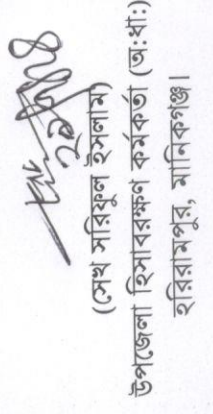 (সেখ সরিফুল ইসলাম)
উপজেলা হিসাবরক্ষণ কর্মকর্তা (অ:ধা:)
হরিরামপুর, মানিকগঞ্জ।